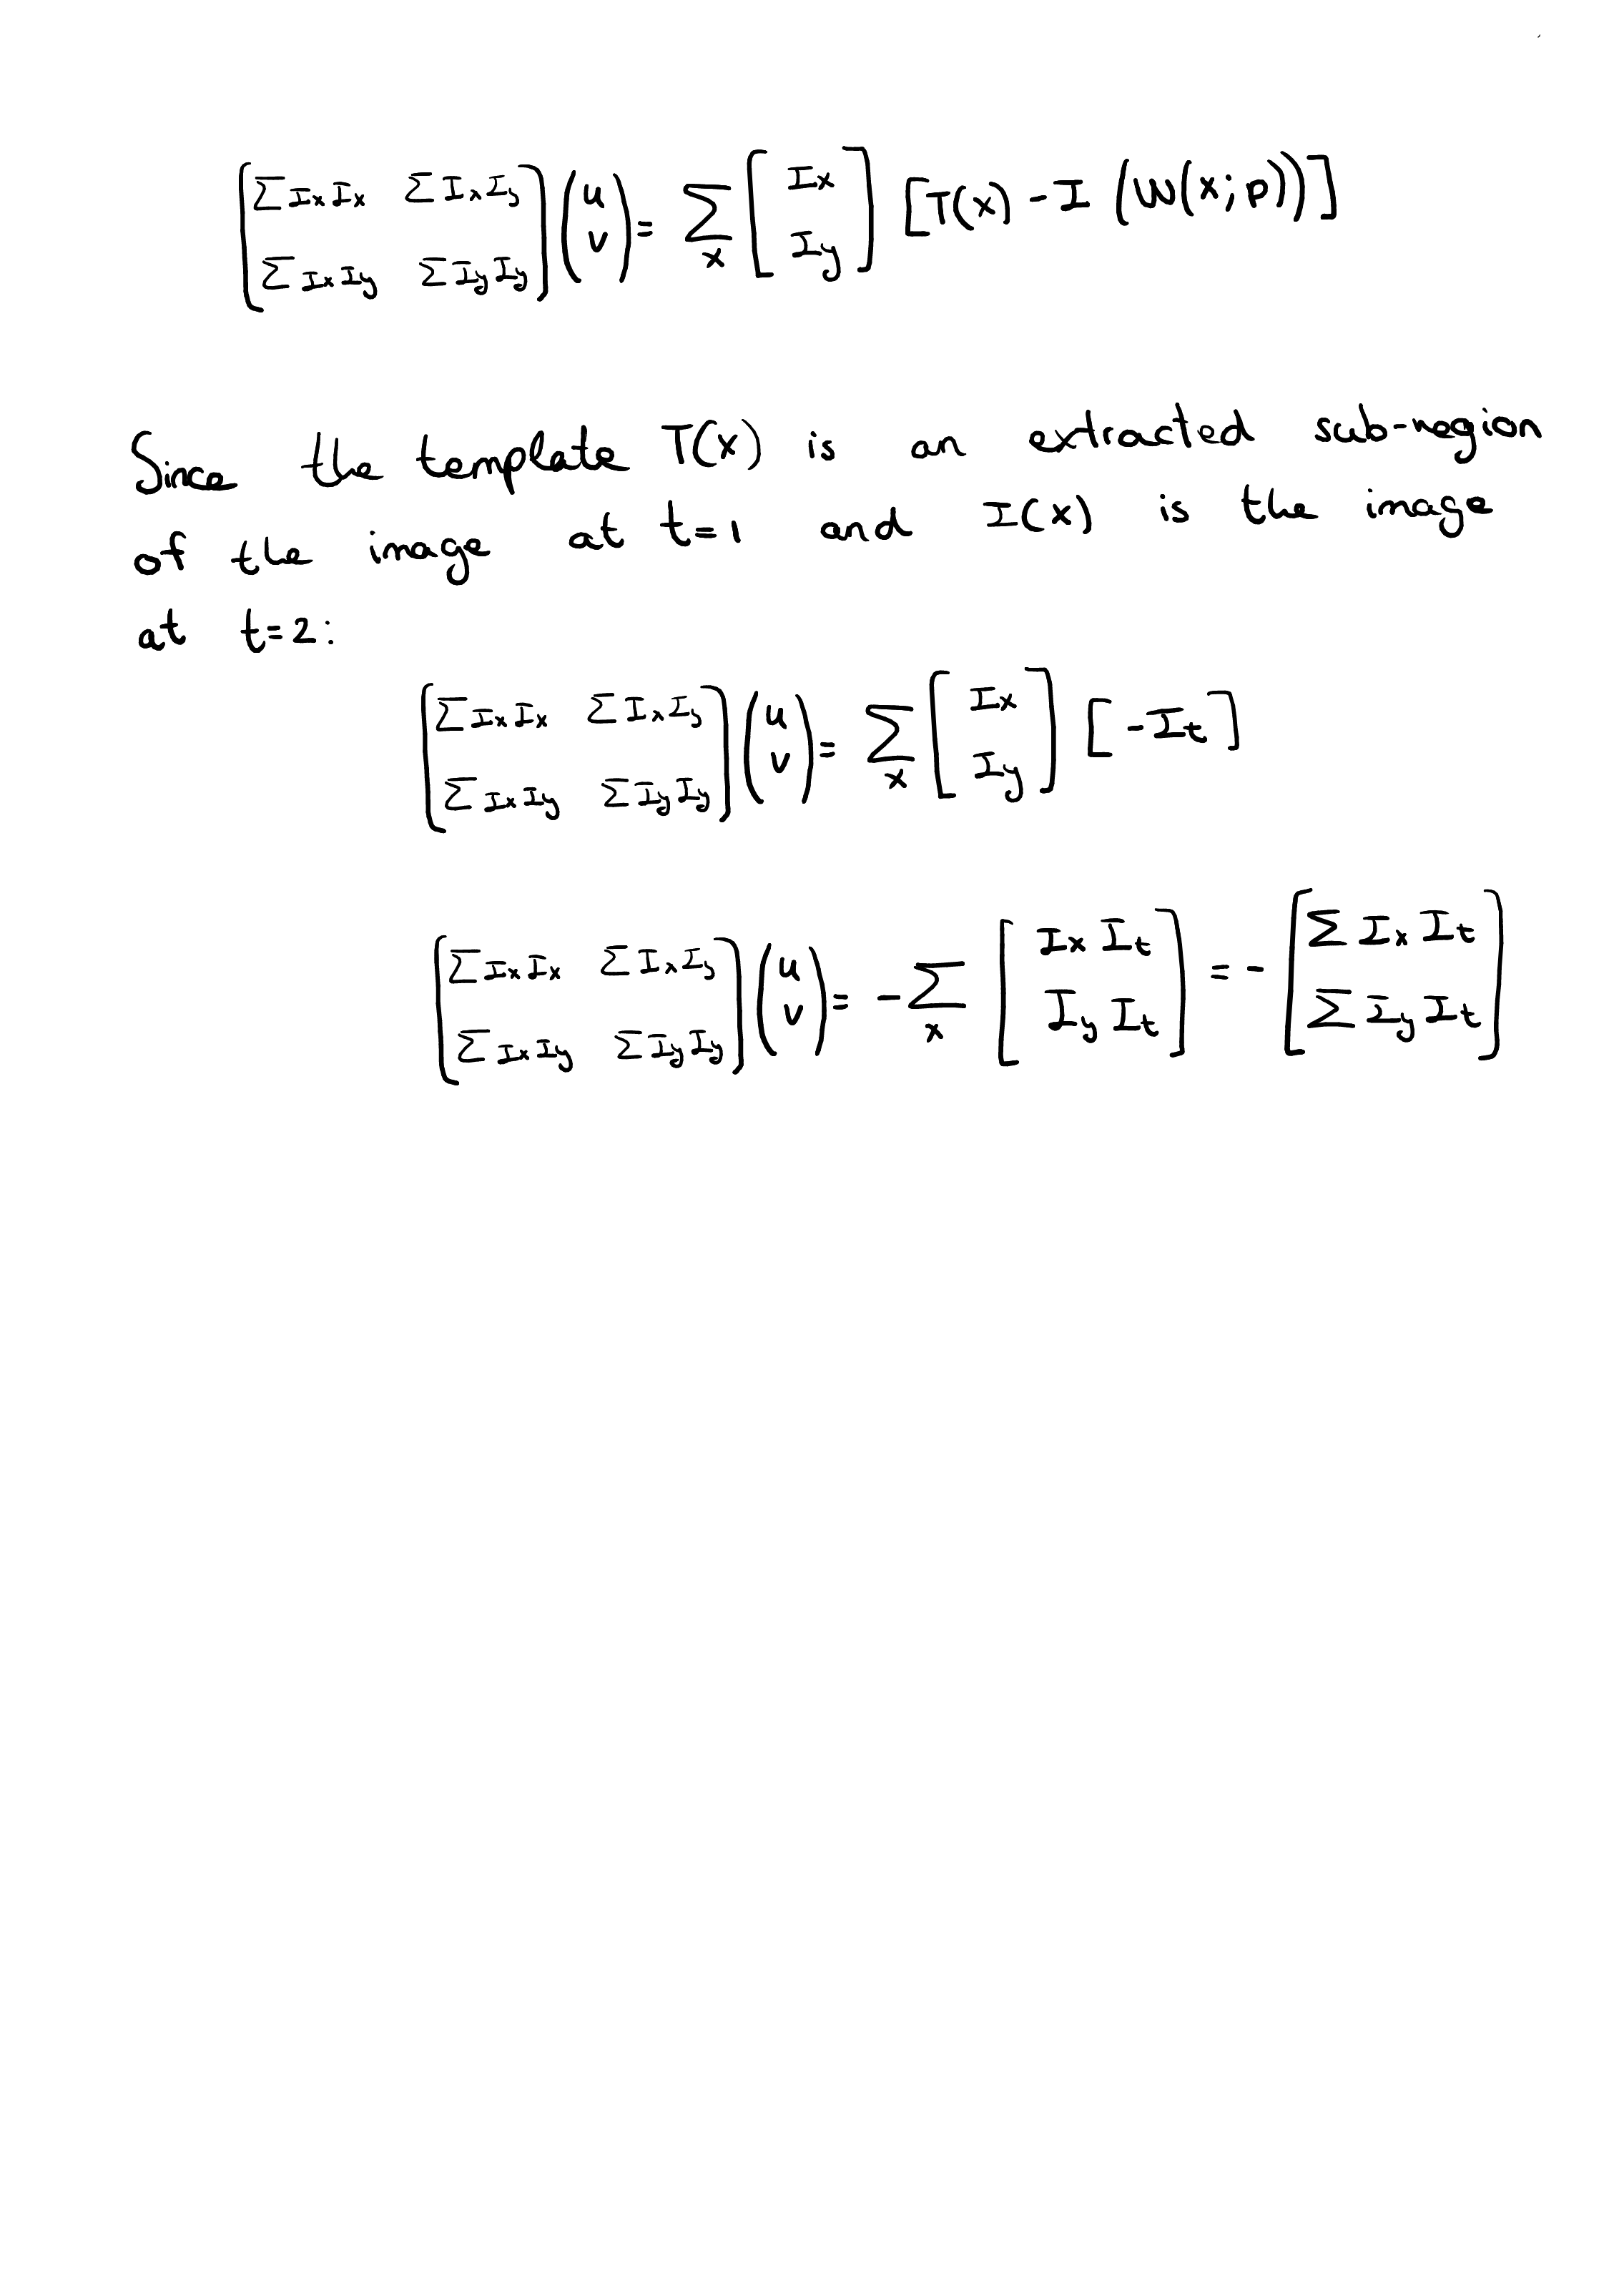 [ΣIxIx ΣIxIy; ΣIxIy ΣIyIy] (u; v) = Σx [Ix; Iy] [T(x) - I (W(x;p))]
Since the template T(x) is an extracted sub-region
of the image at t=1 and I(x) is the image
at t=2:
[ΣIxIx ΣIxIy; ΣIxIy ΣIyIy] (u; v) = Σx [Ix; Iy] [-It]
[ΣIxIx ΣIxIy; ΣIxIy ΣIyIy] (u; v) = -Σx [IxIt; IyIt] = -[ΣIxIt; ΣIyIt]